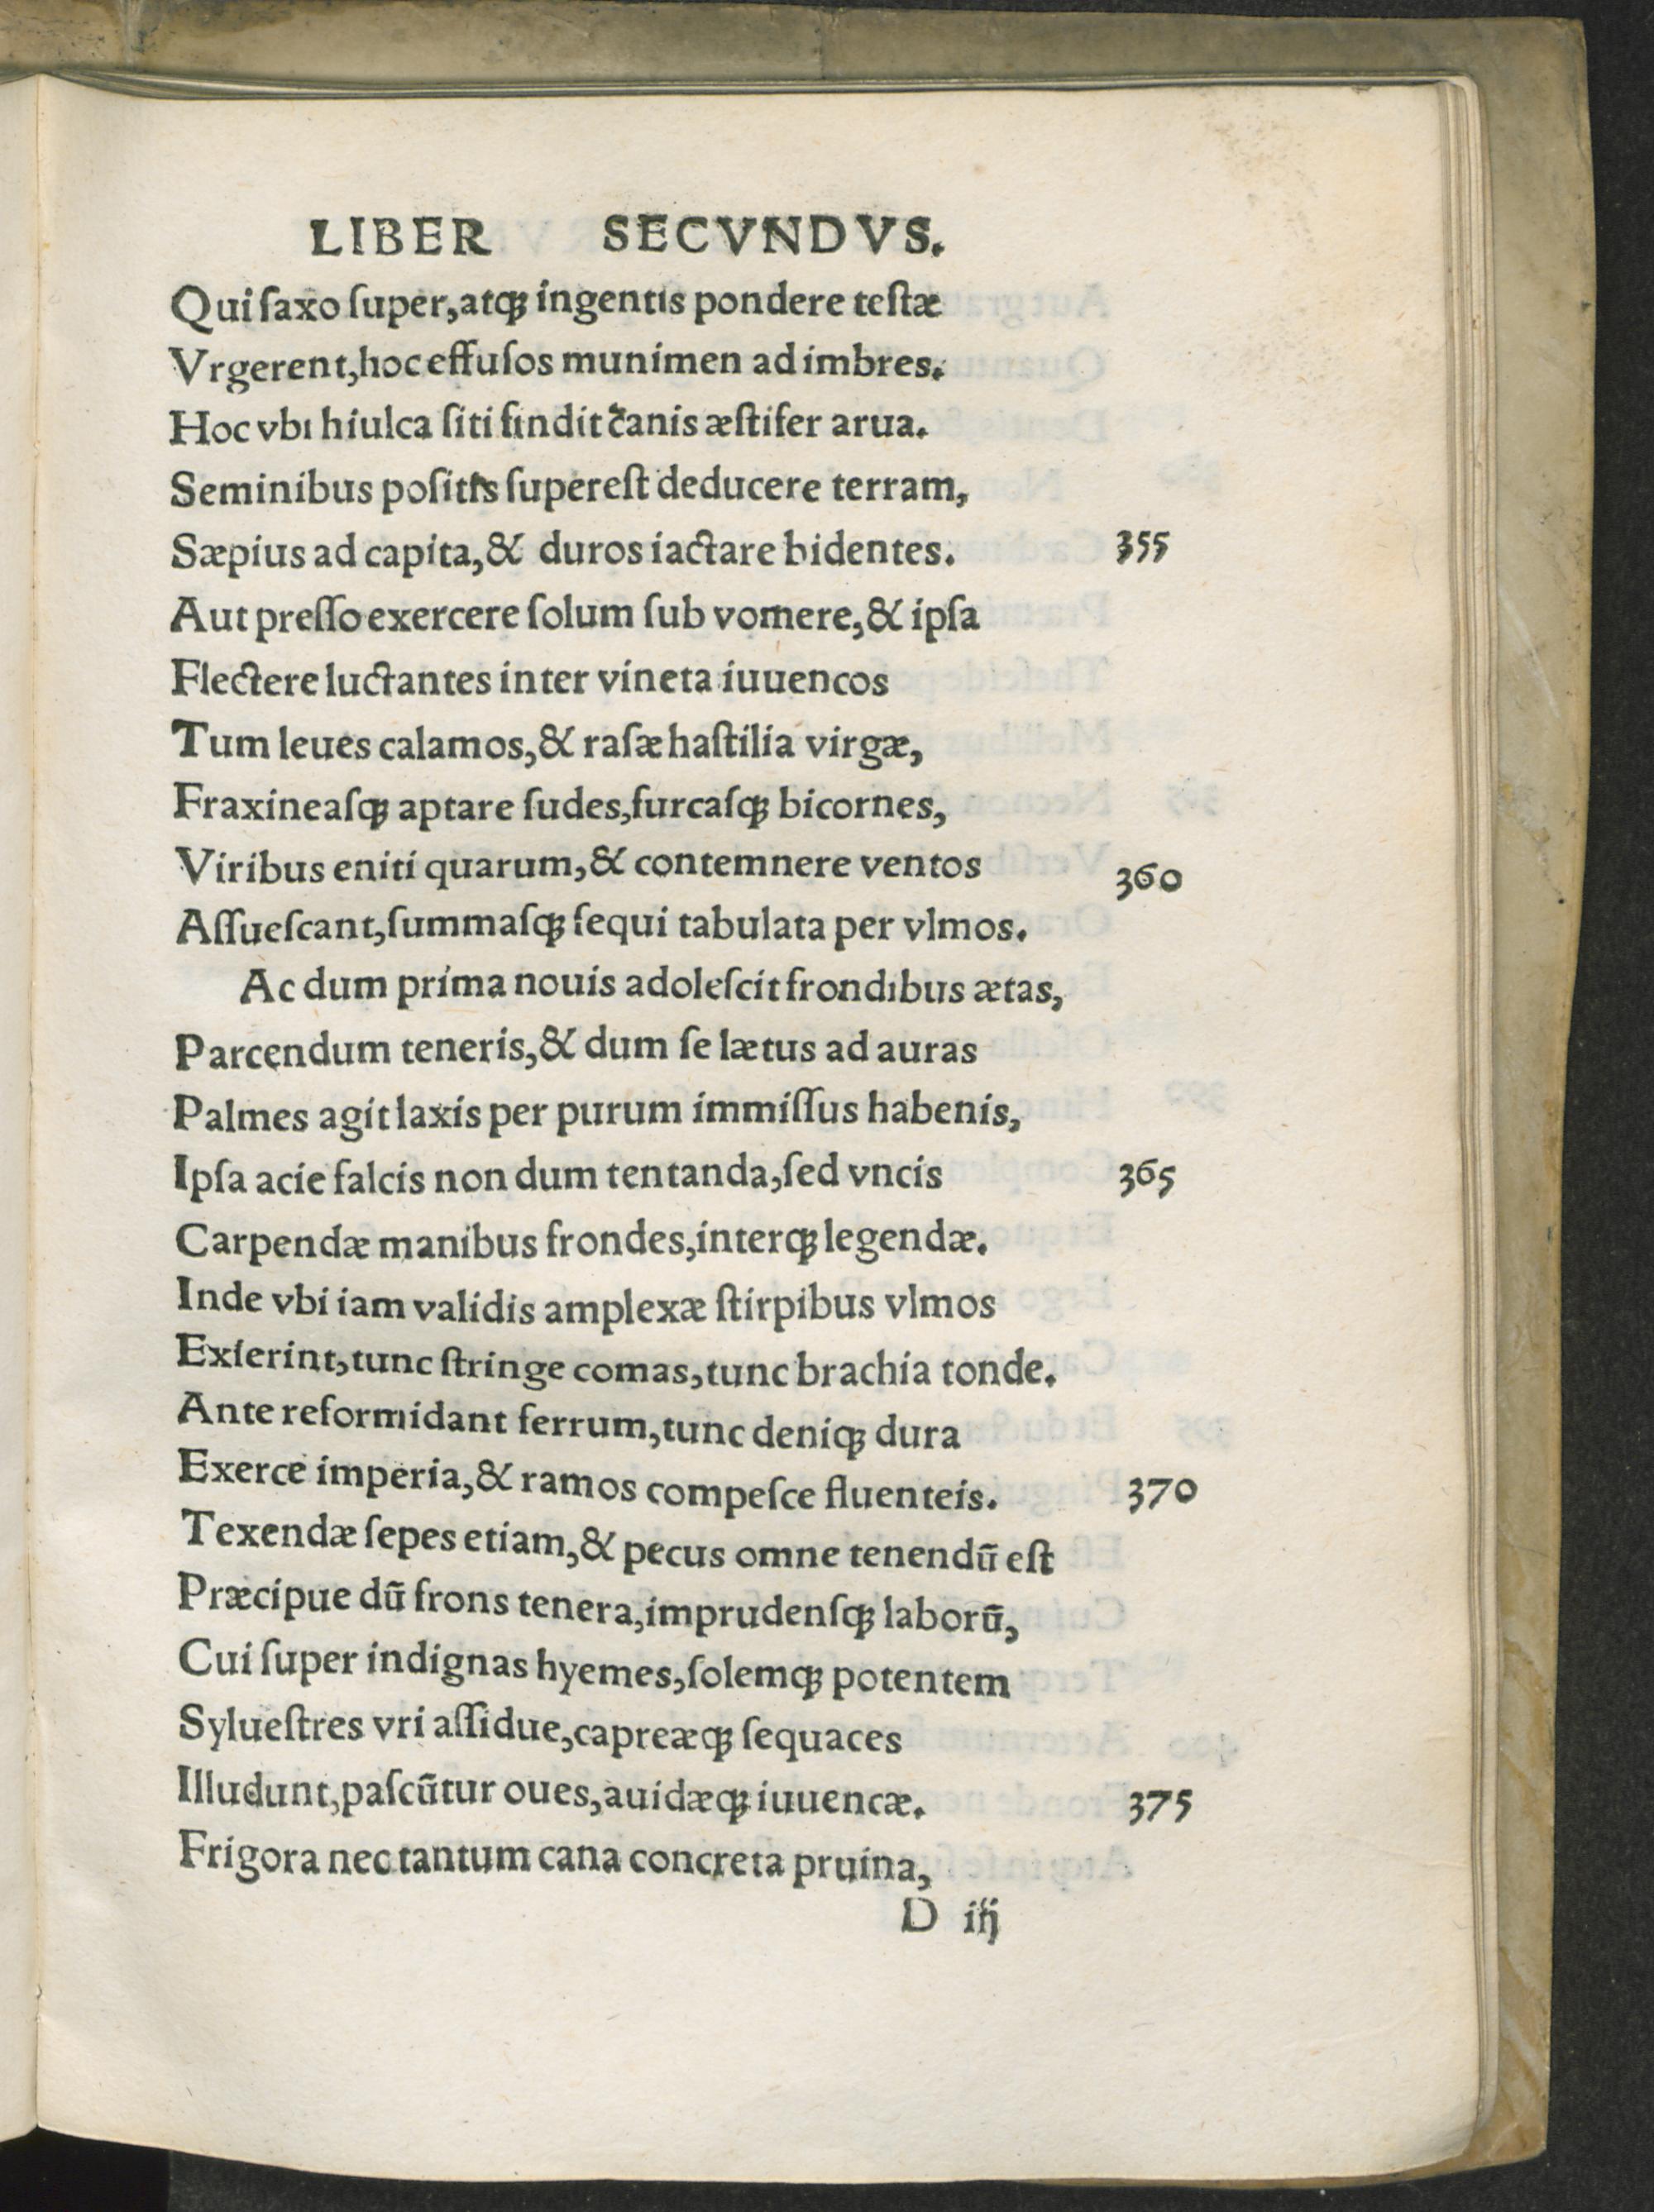 LIBER SECVNDVS.
Qui ſaxo ſuper, atqꝫ ingentis pondere teſtæ
Vrgerent, hoc effuſos munimen ad imbres.
Hoc vbi hiulca ſiti findit canis æſtifer arua.
Seminibus poſitis ſupereſt deducere terram,
Sæpius ad capita, & duros iactare bidentes. 355
Aut preſſo exercere ſolum ſub vomere, & ipſa
Flectere luctantes inter vineta iuuencos
Tum leues calamos, & raſæ haſtilia virgæ,
Fraxineaſqꝫ aptare ſudes, furcaſqꝫ bicornes,
Viribus eniti quarum, & contemnere ventos 360
Aſſueſcant, ſummaſqꝫ ſequi tabulata per vlmos.
Ac dum prima nouis adoleſcit frondibus ætas,
Parcendum teneris, & dum ſe lætus ad auras
Palmes agit laxis per purum immiſſus habenis,
Ipſa acie falcis non dum tentanda, ſed vncis 365
Carpendæ manibus frondes, interqꝫ legendæ.
Inde vbi iam validis amplexæ ſtirpibus vlmos
Exierint, tunc ſtringe comas, tunc brachia tonde.
Ante reformidant ferrum, tunc deniqꝫ dura
Exerce imperia, & ramos compeſce fluenteis. 370
Texendæ ſepes etiam, & pecus omne tenendū eſt
Præcipue dū frons tenera, imprudenſqꝫ laborū,
Cui ſuper indignas hyemes, ſolemqꝫ potentem
Sylueſtres vri aſſidue, capreæqꝫ ſequaces
Illudunt, paſcūtur oues, auidæqꝫ iuuencæ. 375
Frigora nec tantum cana concreta pruina,
D iij